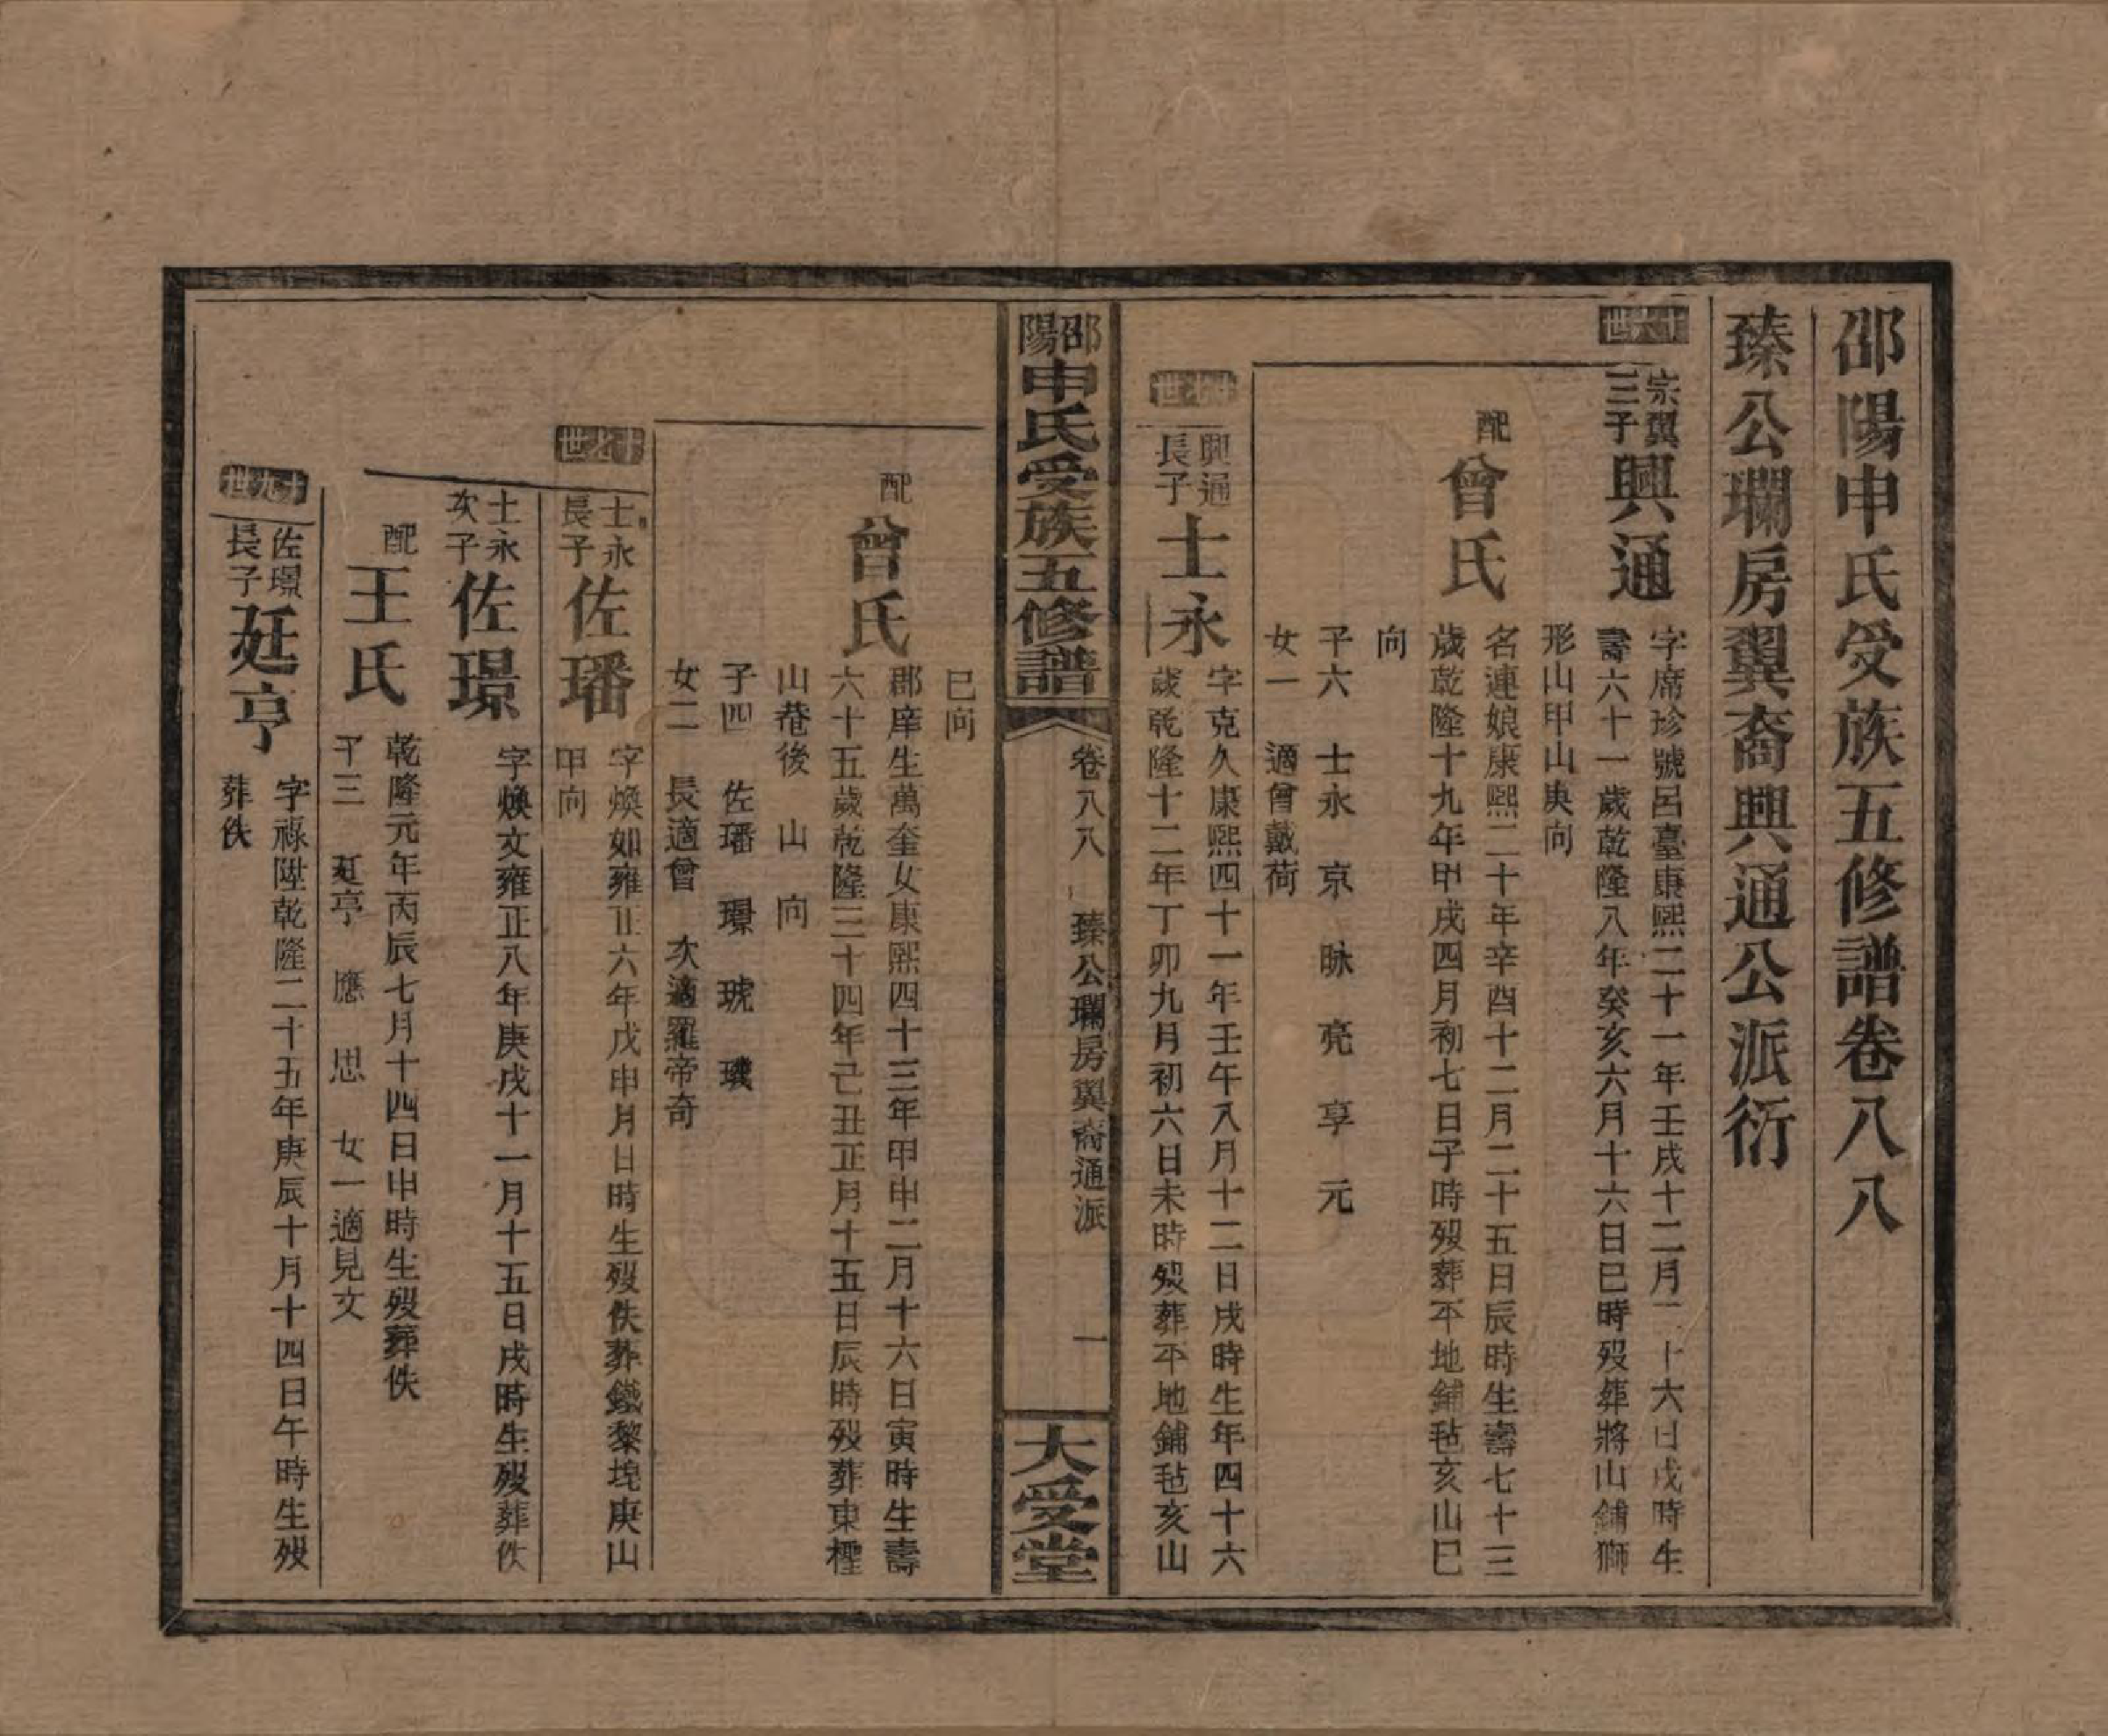 邵陽申氏受族五修譜卷八八
臻公瓓房翼裔興通公派衍
十六世
宗翼三子
興通
字席珍號呂臺康熙二十一年壬戌十二月二十六日戌時生
壽六十一歲乾隆八年癸亥六月十六日巳時歿葬將山鋪獅
形山甲山庚向
配
曾氏
名連娘康熙二十年辛酉十二月二十五日辰時生壽七十三
歲乾隆十九年甲戌四月初七日子時歿葬平地鋪毡亥山巳
向
子六 士永 京 脉 亮 享 元
女一 適曾戴荷
十七世
興通長子
士永
字克久康熙四十一年壬午八月十二日戌時生年四十六
歲乾隆十二年丁卯九月初六日未時歿葬平地鋪毡亥山
邵陽申氏受族五修譜
卷八八 臻公瓓房翼裔通派 一
大受堂
巳向
配
曾氏
郡庠生萬奎女康熙四十三年甲申二月十六日寅時生壽
六十五歲乾隆三十四年己丑正月十五日辰時歿葬東檉
山菴後 山 向
子四 佐璠 璟 琥 璣
女二 長適曾 次適羅帝奇
世
士永長子
佐璠
字煥如雍正六年戊申月日時生歿佚葬鐵黎埦庚山
甲向
士永次子
佐璟
字煥文雍正八年庚戌十一月十五日戌時生歿葬佚
配
王氏
乾隆元年丙辰七月十四日申時生歿葬佚
子三 廷亭 應 思 女一適見文
十九世
佐璟長子
廷亭
字祿陞乾隆二十五年庚辰十月十四日午時生歿
葬佚